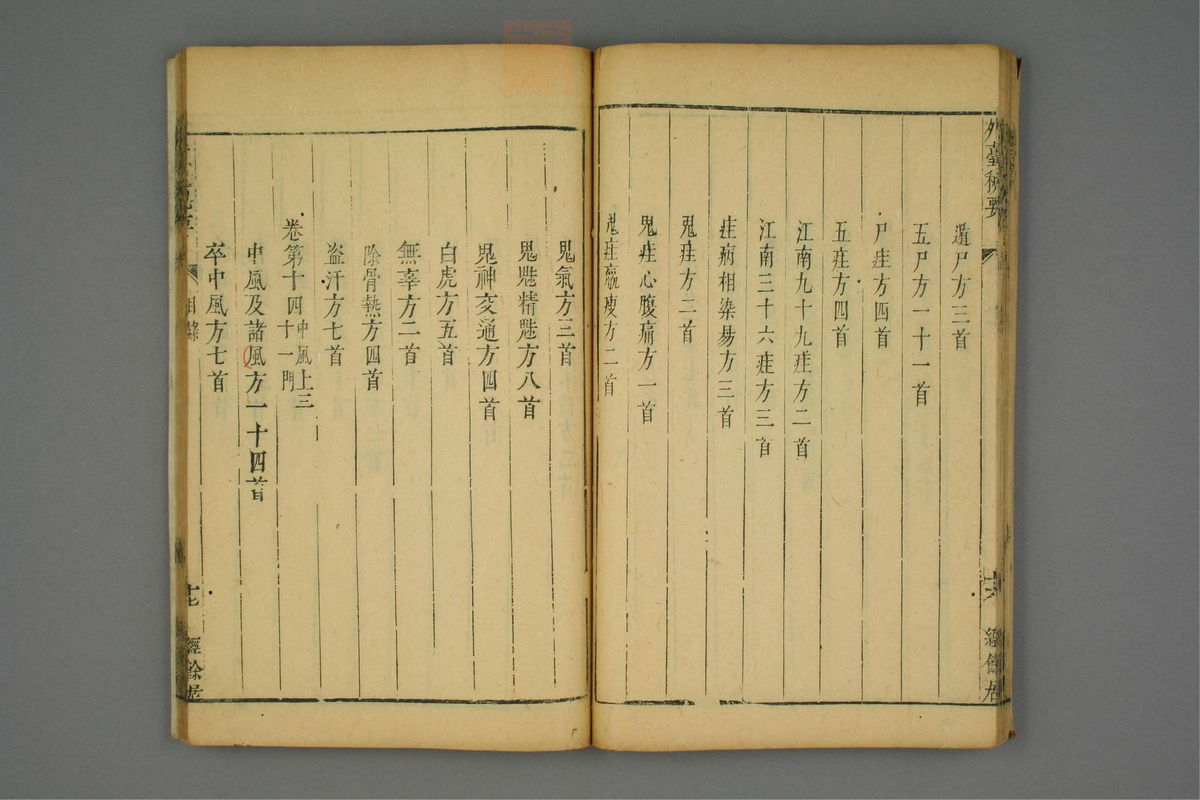 外臺秘要
遁尸方三首
五尸方一十一首
尸疰方四首
五疰方四首
江南九十九疰方二首
江南三十六疰方三首
疰病相染易方三首
鬼疰方二首
鬼疰心腹痛方一首
鬼疰羸瘦方二首
十六
經餘居
鬼氣方三首
鬼魅精魅方八首
鬼神交通方四首
白虎方五首
無辜方二首
除骨熱方四首
盗汗方七首
卷第十四中風上三十一門
中風及諸風方一十四首
卒中風方七首
目錄
十七
經餘居